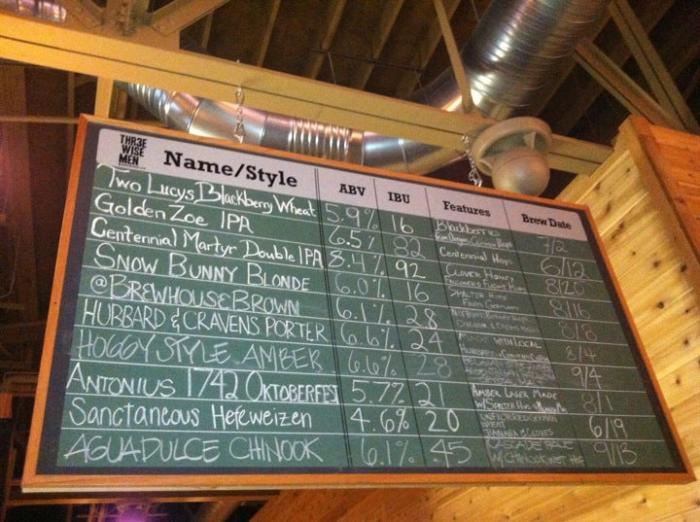 THR3E
WISE
MEN
Name/Style ABV IBU Features Brew Date
Two Lucys Blackberry Wheat 5.9% 16 Blackberries 7/2
Golden Zoe IPA 6.5% 82 Centennial Hops 6/12
Centennial Martyr Double IPA 8.4% 92 Clover Honey 8/20
Snow Bunny Blonde 6.0% 16 8/16
@BREWHOUSEBROWN 6.1% 28 8/8
HUBBARD & CRAVENS PORTER 6.6% 24 WITH LOCAL 8/4
HOGGYSTYLE AMBER 6.6% 28 9/4
ANTONIUS 1742 OKTOBERFEST 5.7% 21 AMBER LAGER MADE 8/1
Sanctaneous Hefeweizen 4.6% 20 6/19
AGUADULCE CHINOOK 6.1% 45 W/ CHINOOK WET 9/13